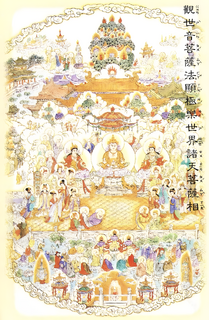 觀世音菩薩法顯極樂世界諸天菩薩相